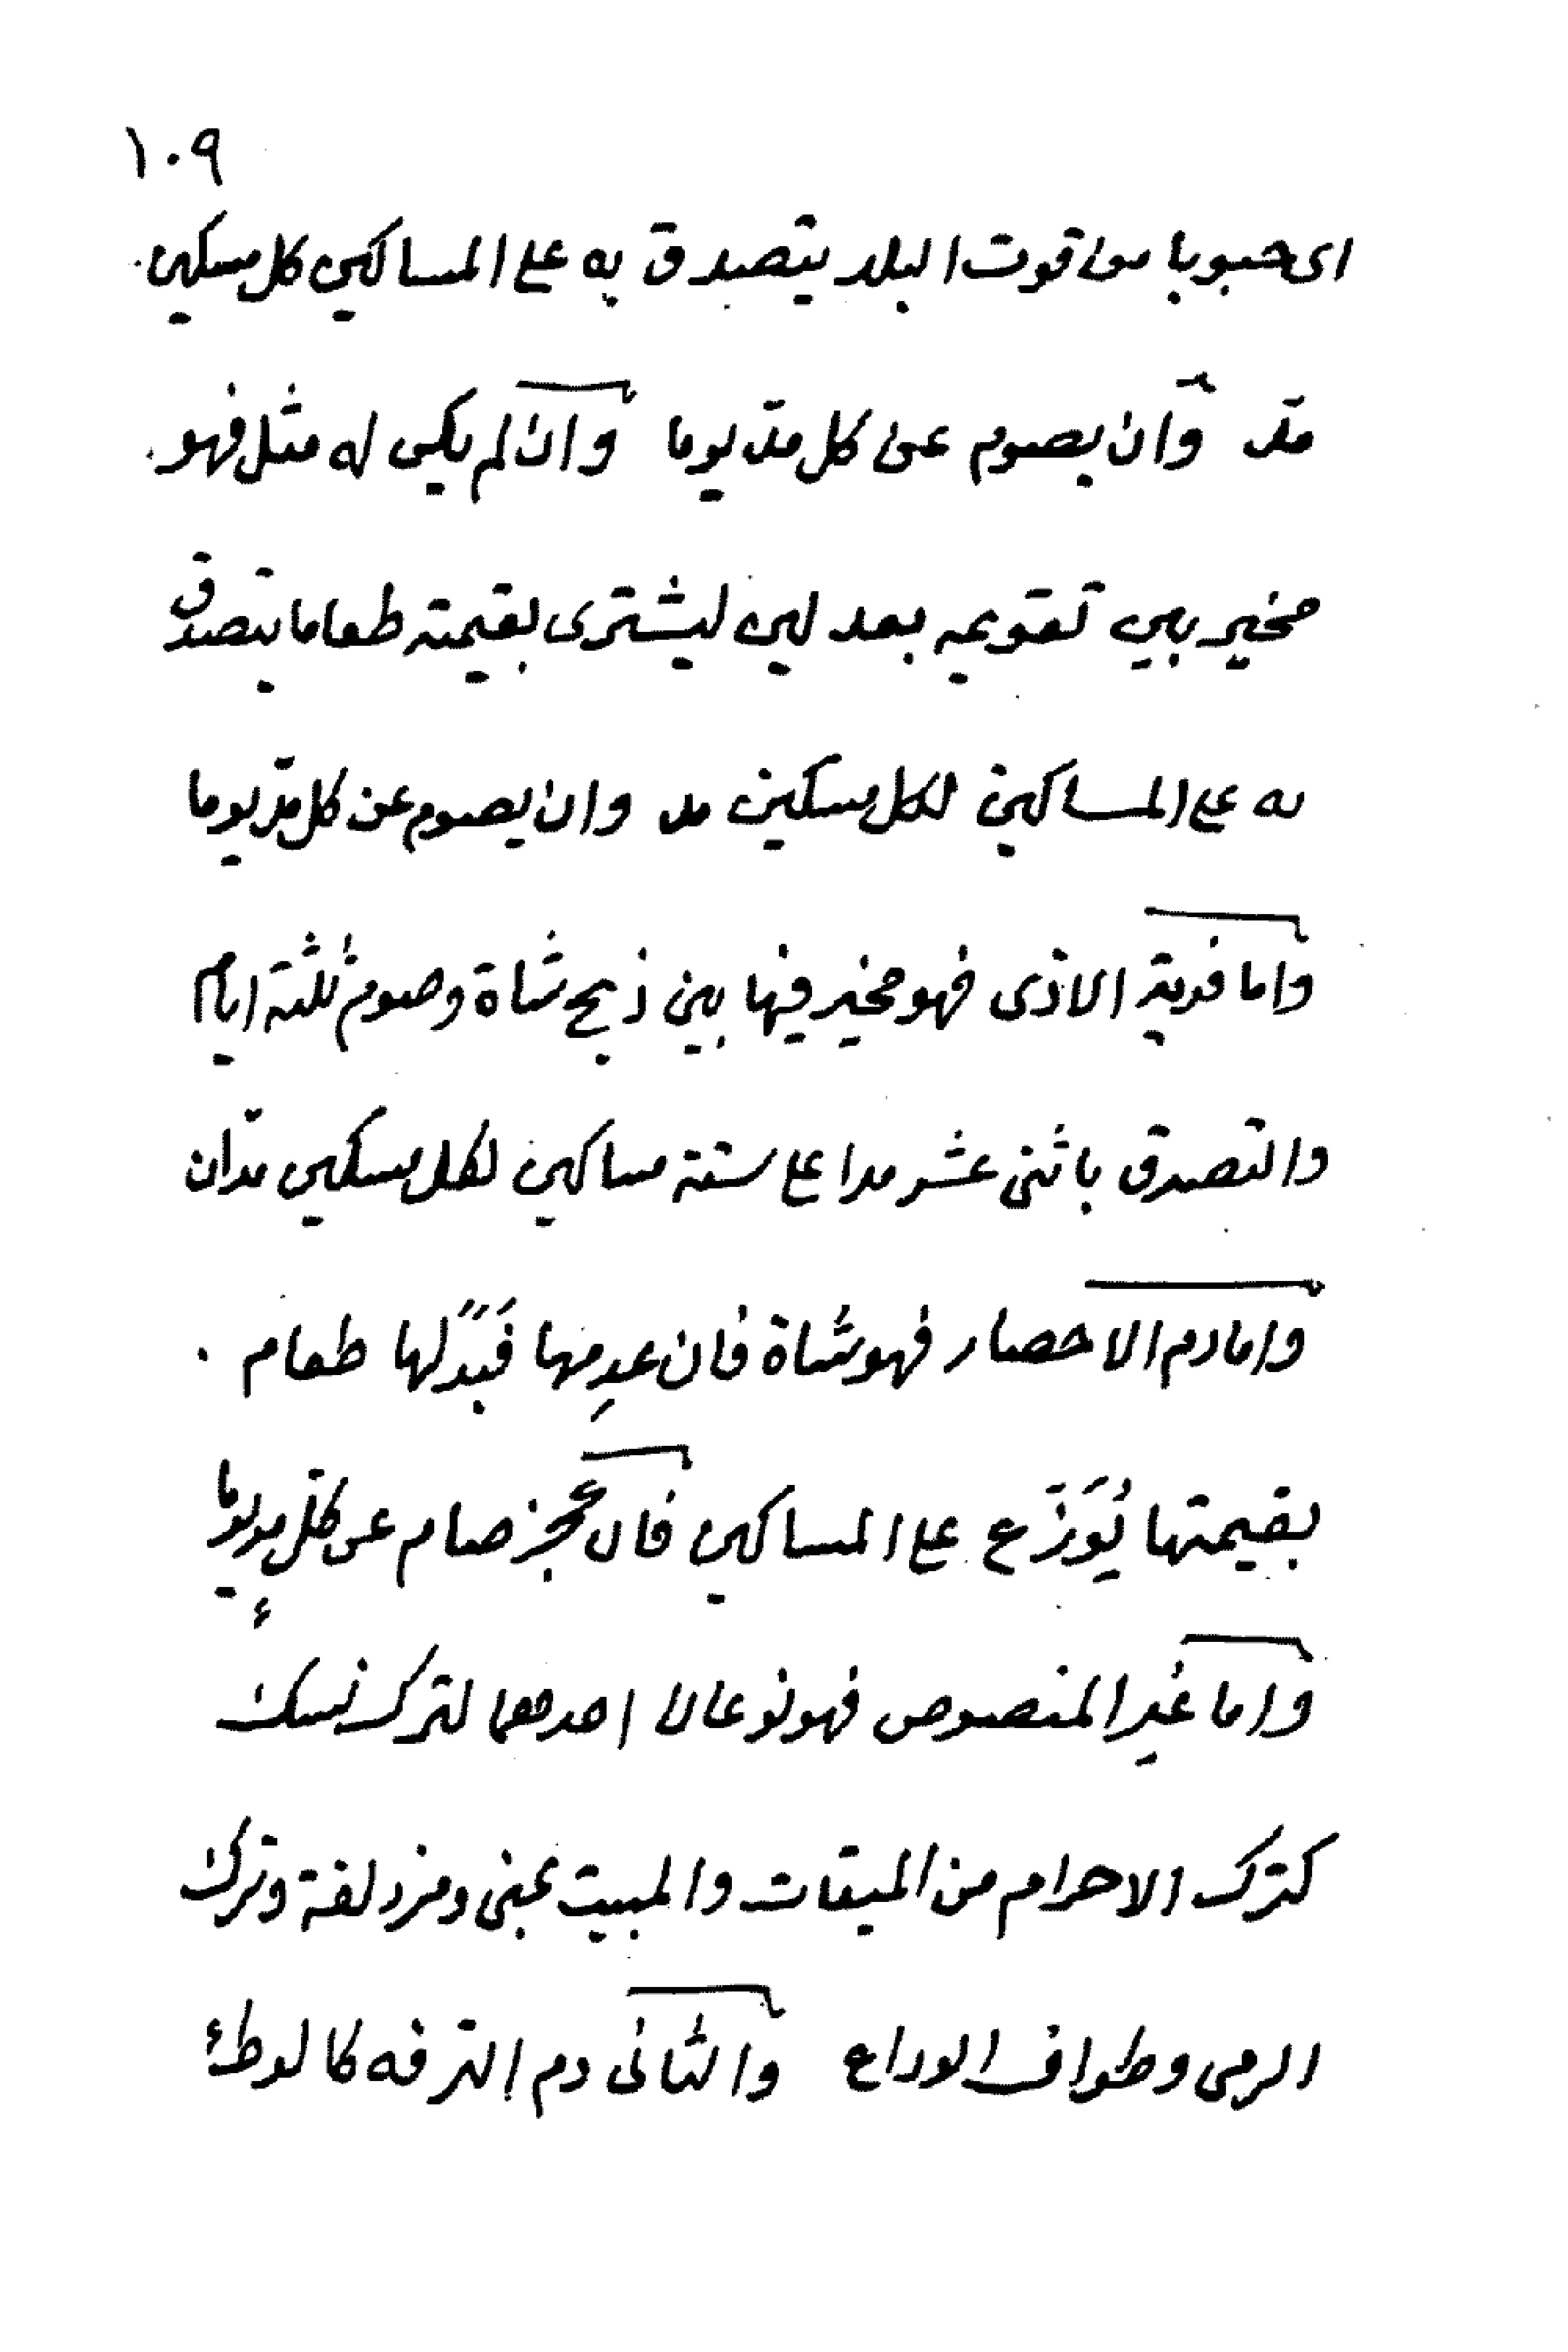 ١٠٩
اى حبوبا من قوت البلد يتصدق به على المساكين كل مسكين
مدّ وان يصوم عن كل مدّ يوما وان لم يكن له مثل فهو
مخير بين تقويمه بعدلين ليشترى بقيمته طعاما يتصدق
به على المساكين لكل مسكين مد وان يصوم عن كل مدّ يوما
واما فدية الاذى فهو مخير فيها بين ذبح شاة وصوم ثلثة ايام
والتصدق باثنى عشر مدا على ستة مساكين لكل مسكين مدّان
واما دم الاحصار فهو شاة فان عدِمها فبَدَلها طعام
بقيمتها يُوَزَّع على المساكين فان عجز صام عن كل مد يوما
واما غير المنصوص فهو نوعان احدهما لترك نسكٍ
كترك الاحرام من الميقات والمبيت بمنى ومزدلفة وترك
الرمى وطواف الوداع والثانى دم الترفه كالوطئ